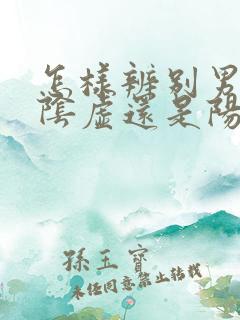 怎樣辨别男
陰虛還是陽
孫玉寶
未經同意禁止转载